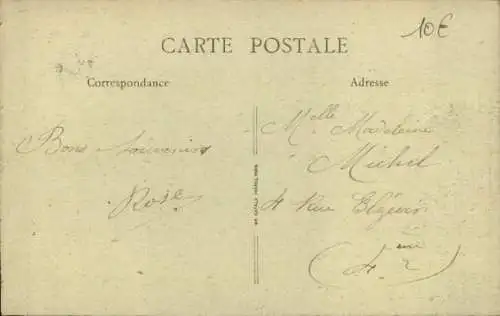 10€
CARTE POSTALE
Correspondance
Adresse
Bons Souvenirs
Rose
Melle Madeleine
Michel
4 Rue Elzévir
(4ème)